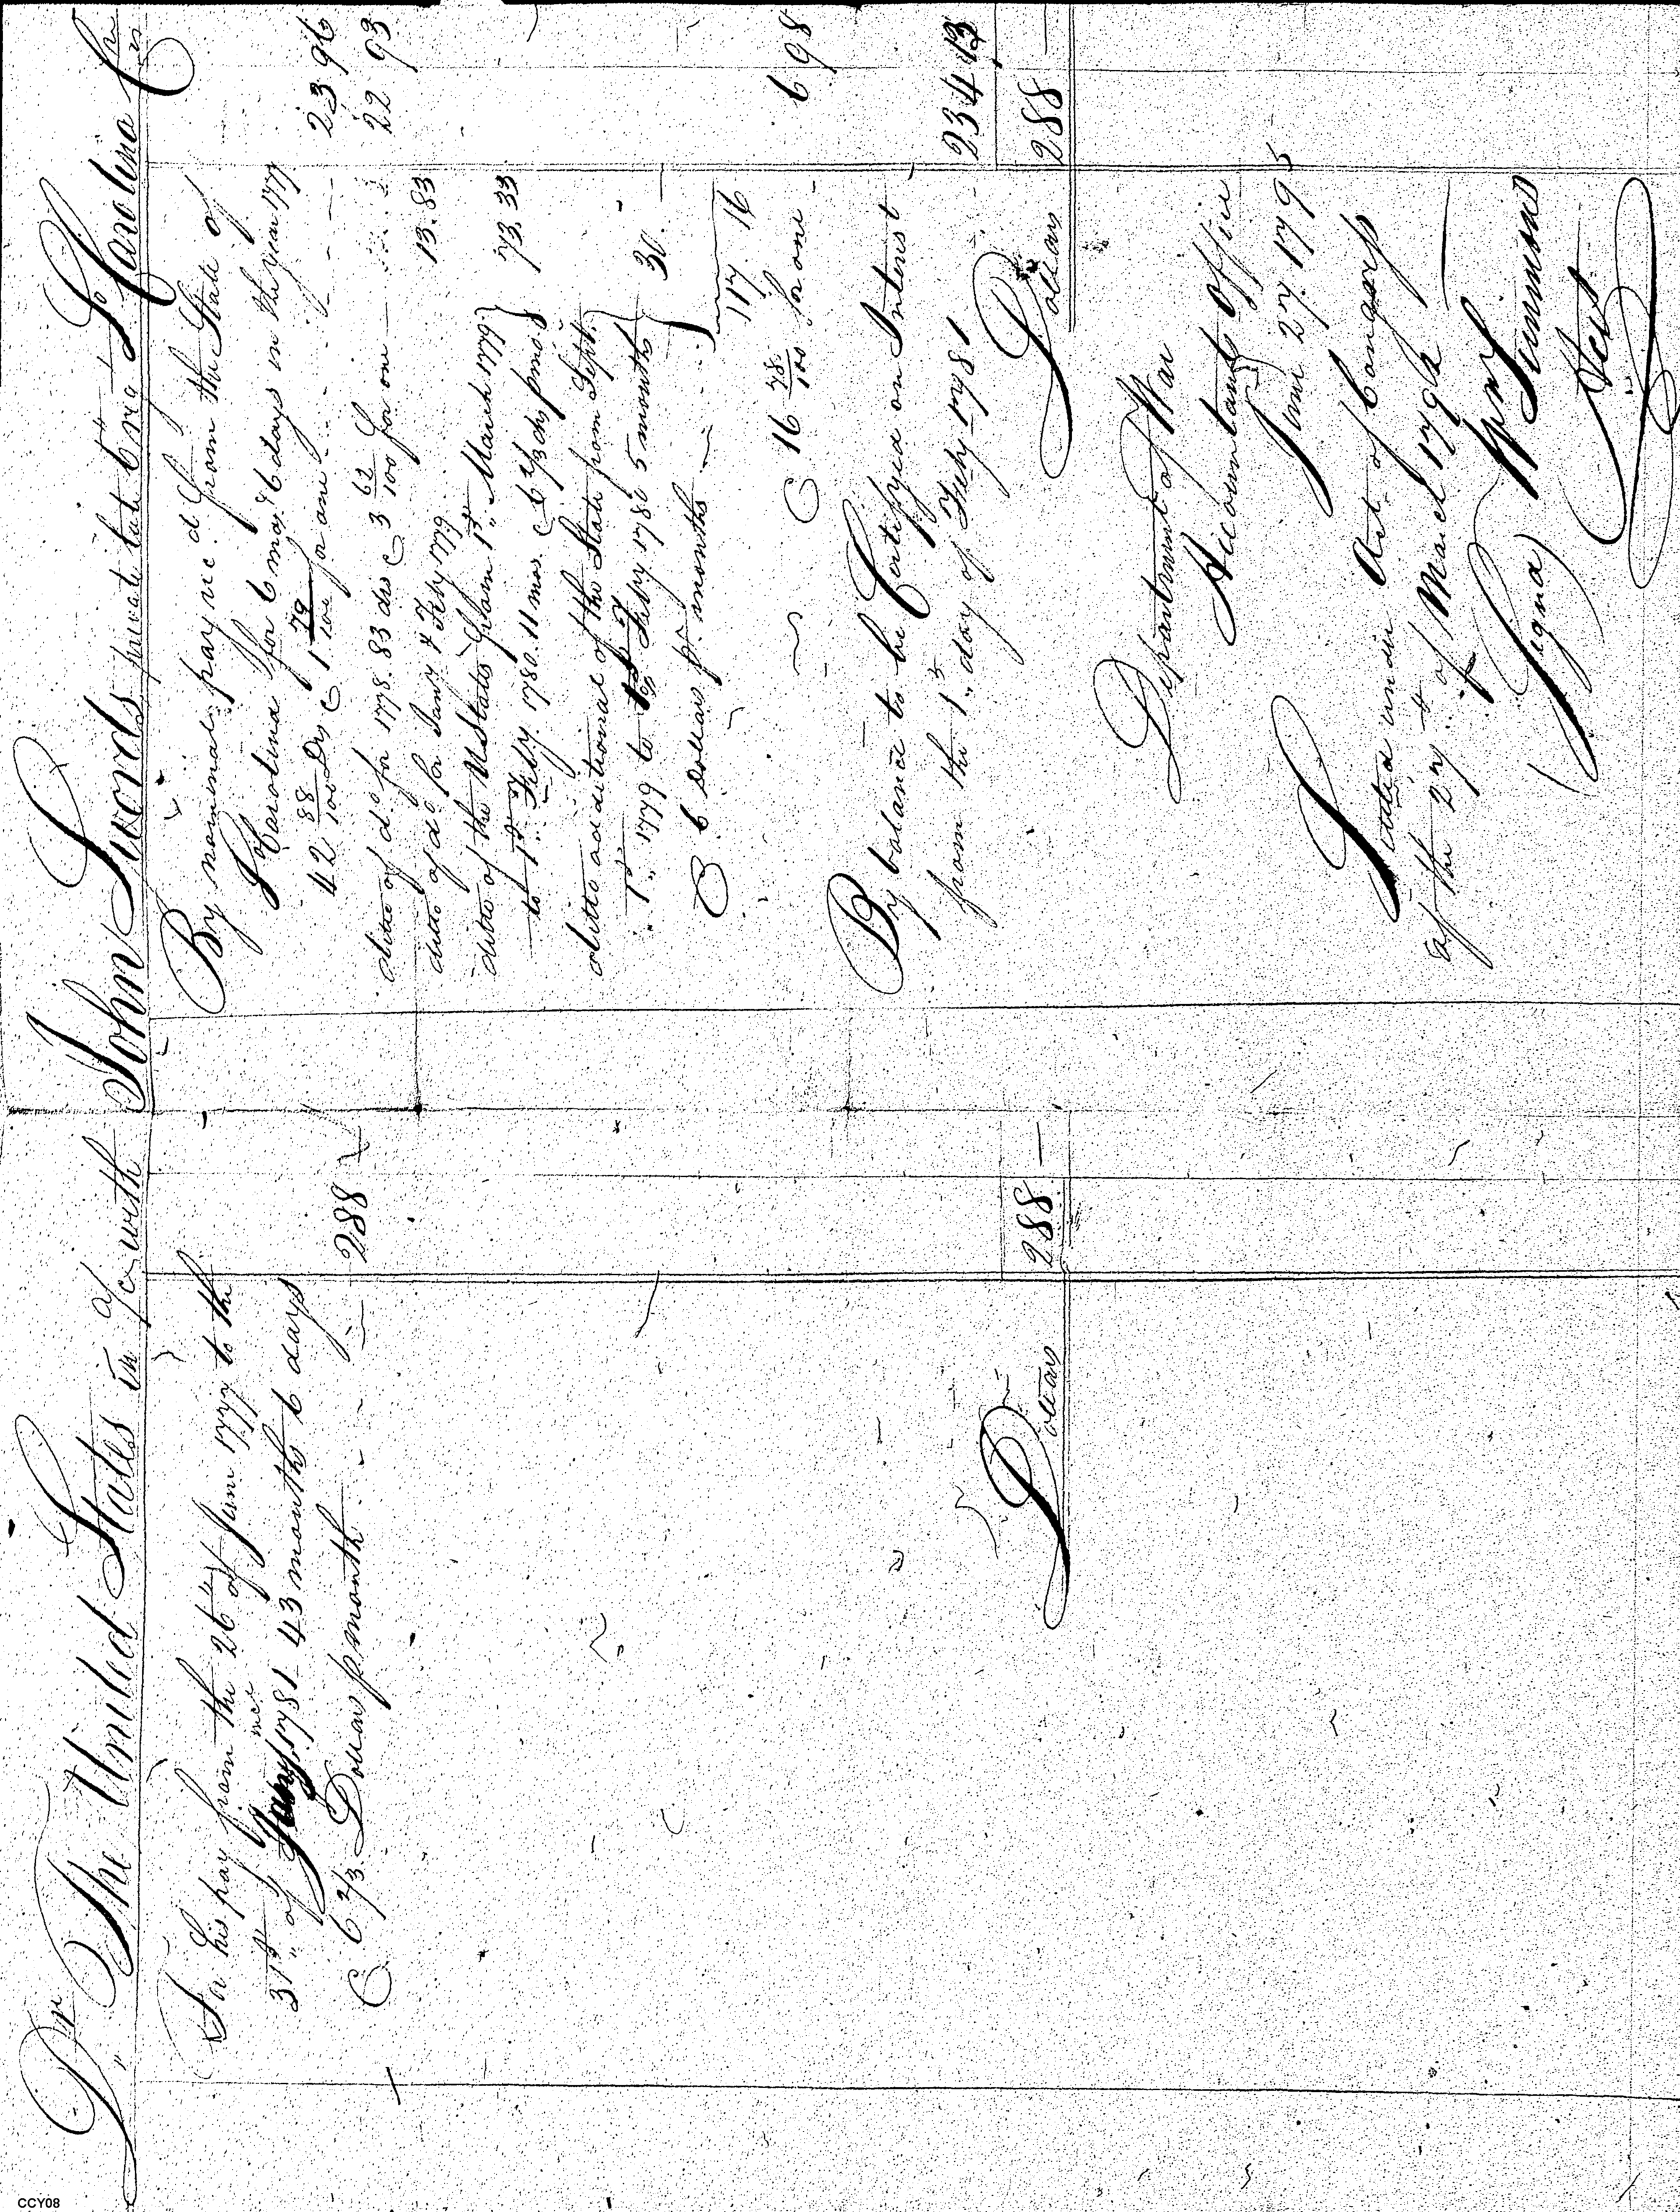 Dr The United States in a/c with John Swords private late 6 reg So Carolina Cr
For his pay from the 26th of June 1777 to the
31st of Jany 1781 inc 43 months 6 days
@ 6 2/3 Dollars p month 288
Dollars 288 —
By nominal pay recd from the State of
So Carolina for 6 mos 6 days in the year 1777
42 88/100 Drs @ 1 79/100 for one 23 96
ditto of do for 1778. 83 drs @ 3 62/100 for one 22 93
ditto of do for Jany & Feby 1779 13.83
ditto of the U States from 1st March 1779
to 1st Feby. 1780. 11 mos. @ 6 2/3 ds p mo 73.33
ditto additional of the State from Sept.
1st 1779 to 1st Feby 1780 5 months
@ 6 Dollars pr. months 30.
117 16
@ 16 78/100 for one 6 98
By balance to be Certifyed on Interest
from the 1st day of Feby 1781 234 13
Dollars 288 —
Department of War
Accountants Office
June 27. 1795
Settled under Act of Congress
of the 27th of March 1792
(Signd) Wm Simmons
Acct
CCY08